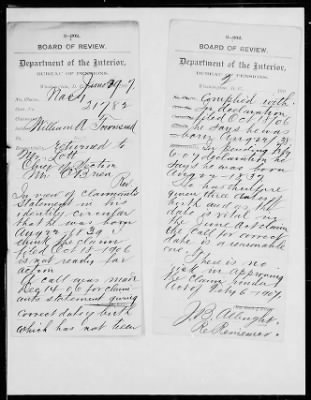 3-202.
BOARD OF REVIEW.
Department of the Interior,
BUREAU OF PENSIONS,
Washington, D. C., June 29, 7.
No.
31782
William A Townsend
returned to
Mr Lott
Chief Section
Mr O'Brien
Rev
In view of claimants
statement in his
identity circular
that he was born
Aug 22 1839 I
think the claim
filed Oct 15 1906
is not ready for
action
A call was made
Dec 14 06 for claim
ants statement giving
correct date of birth
which has not been
3-202.
BOARD OF REVIEW.
Department of the Interior,
BUREAU OF PENSIONS,
Washington, D. C., 190
2
Complied with.
In declaration
filed Oct 1906
he says he was
born Aug 22
In pending
declaration he
says he was born
Aug 22 1837
He has therefore
given three dates of
birth and as
date is vital in
the June act claim
the call for correct
date is a reasonable
one.
There is no
in approving
the claim under
Act of Feby 6 1907.
J. B. Albright.
Re Reviewer.